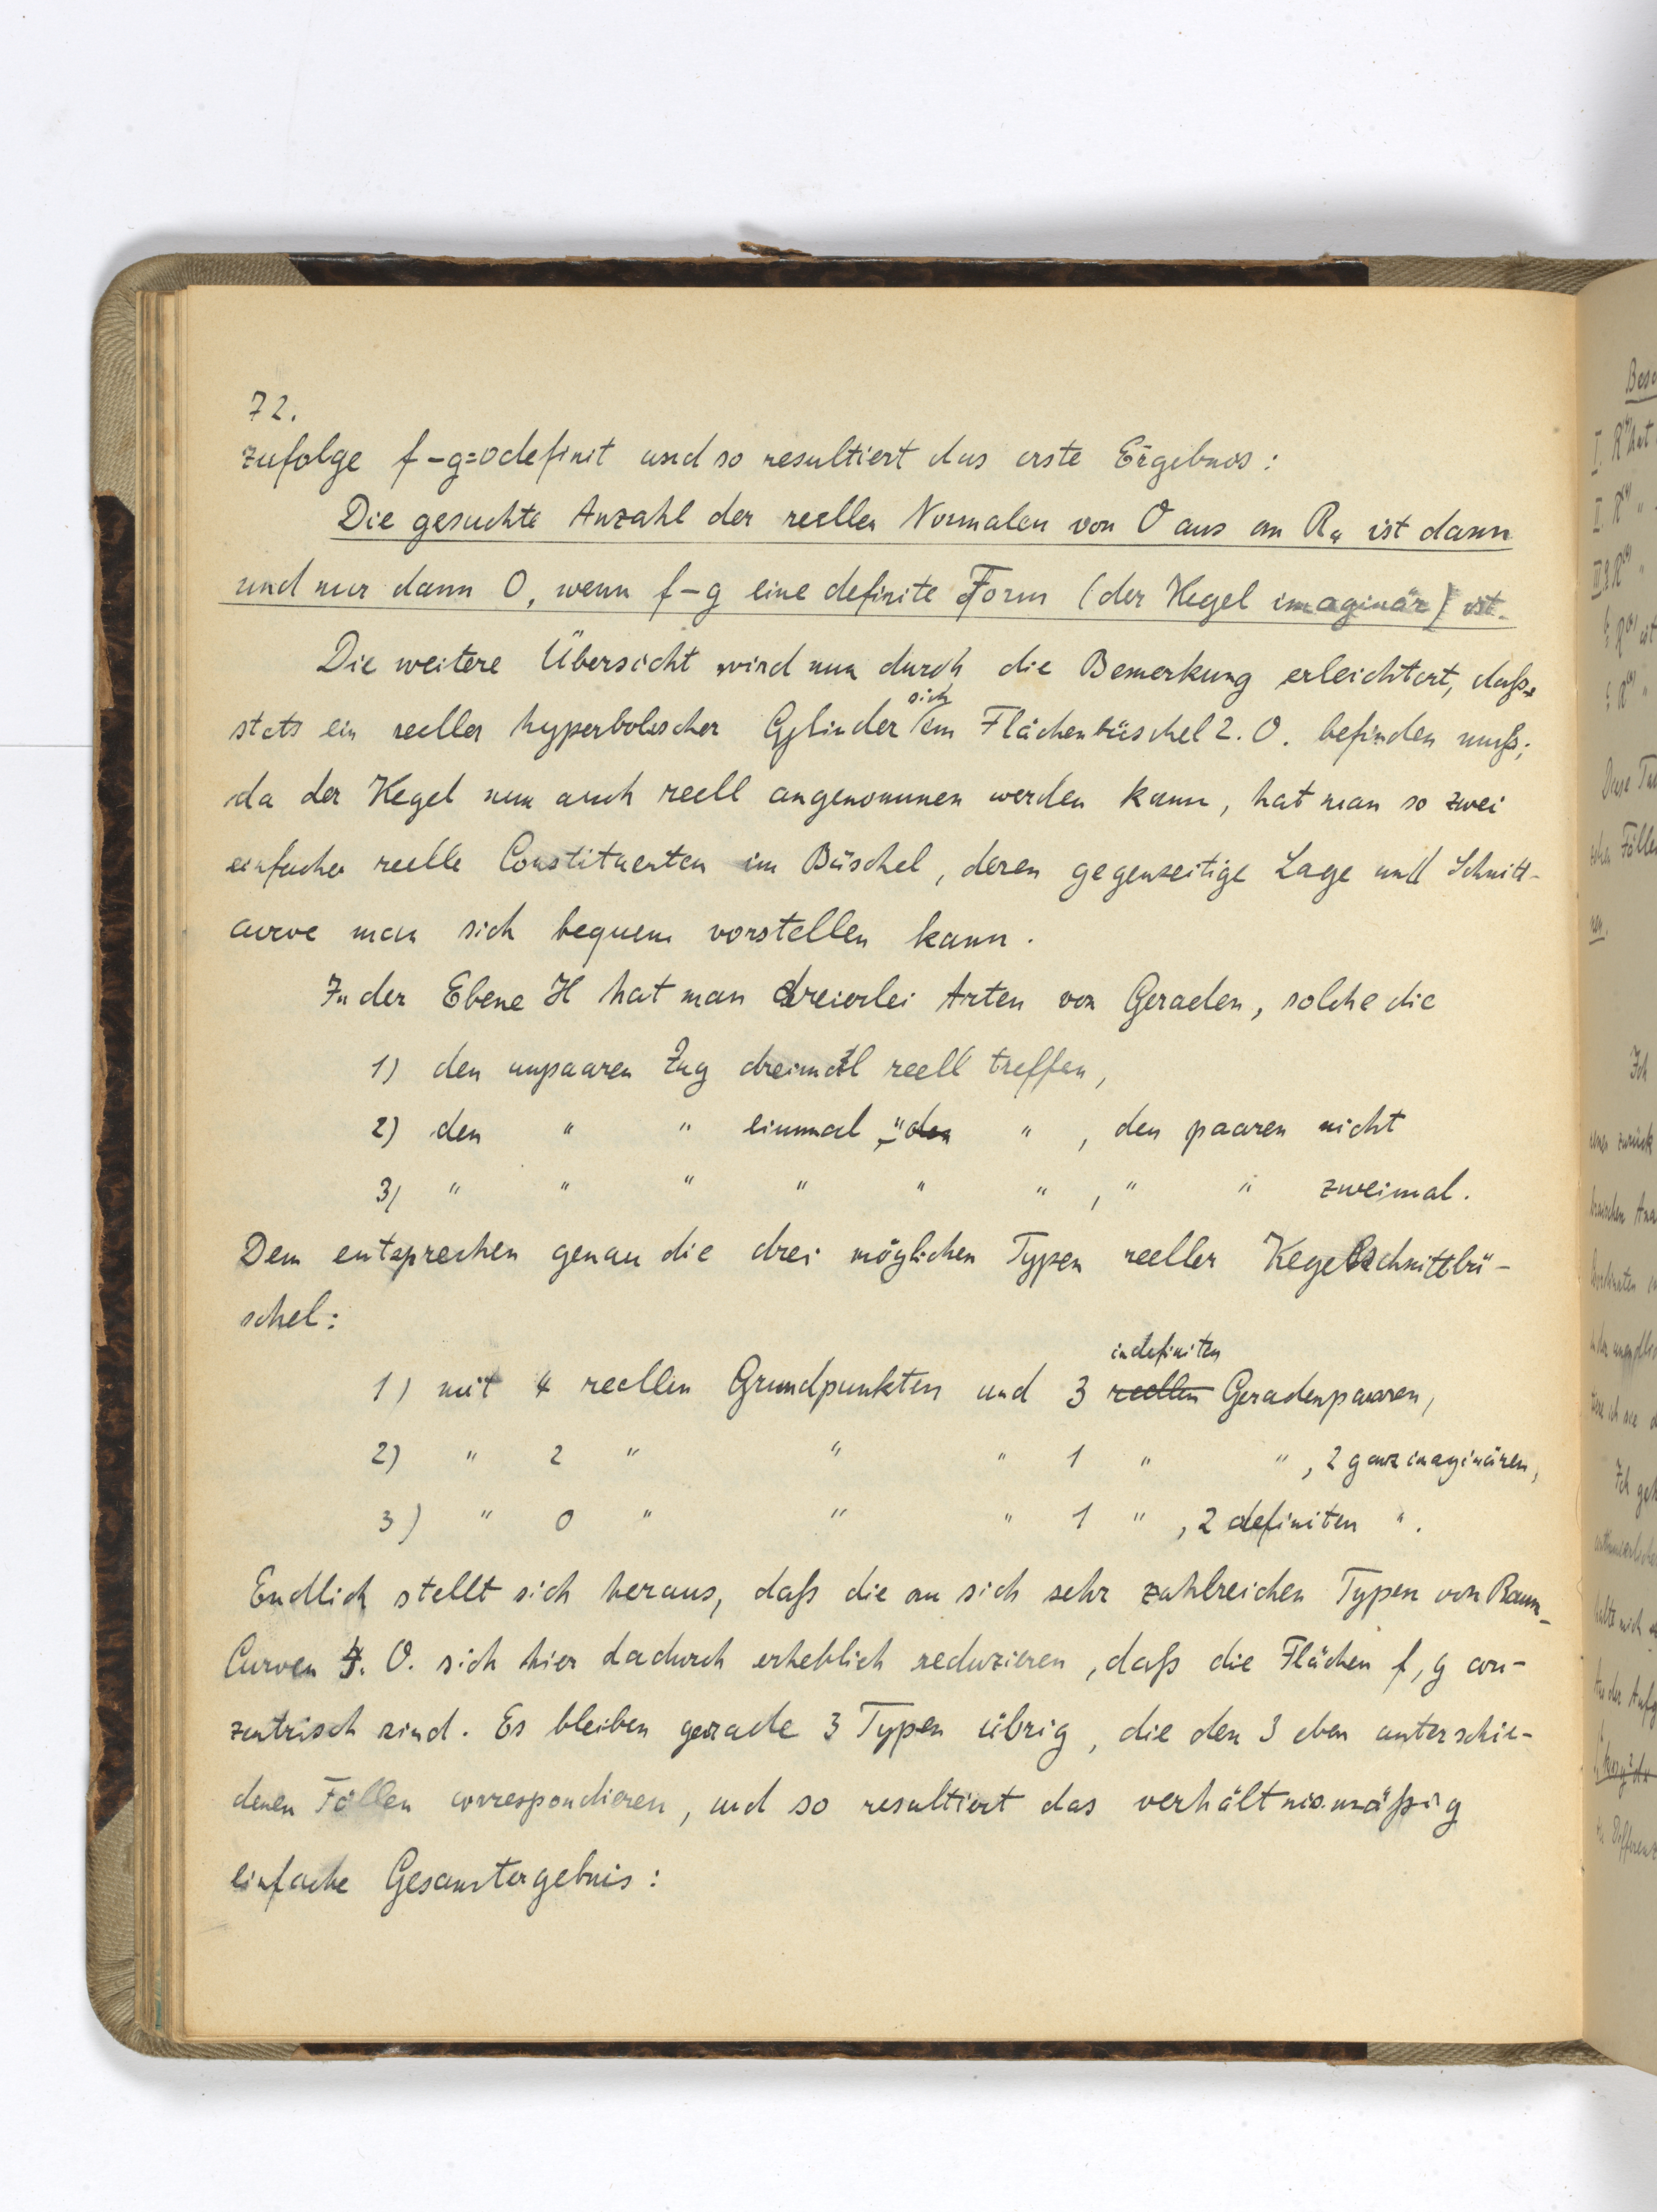 72.
zufolge f-g=0 definit und so resultiert das erste Ergebnis:
Die gesuchte Anzahl der reellen Normalen von O aus an R₄ ist dann
und nur dann 0, wenn f-g eine definite Form (der Kegel imaginär) ist.
Die weitere Übersicht wird nun durch die Bemerkung erleichtert, daß
stets ein reeller hyperbolischer Cylinder sich im Flächenbüschel 2. O. befinden muß;
da der Kegel nun auch reell angenommen werden kann, hat man so zwei
einfache reelle Constituenten im Büschel, deren gegenseitige Lage und Schnitt-
curve man sich bequem vorstellen kann.
In der Ebene H hat man dreierlei Arten von Geraden, solche die
1) den unpaaren Zug dreimal reell treffen,
2) den " " einmal " den " , den paaren nicht
3) " " " " " " , " " zweimal.
Dem entsprechen genau die drei möglichen Typen reeller Kegelschnittbü-
schel:
1) mit 4 reellen Grundpunkten und 3 reellen indefiniten Geradenpaaren,
2) " 2 " " " 1 " " , 2 ganz imaginären,
3) " 0 " " " 1 " , 2 definiten ".
Endlich stellt sich heraus, daß die an sich sehr zahlreichen Typen von Raum-
Curven 4. O. sich hier dadurch erheblich reduzieren, daß die Flächen f, g con-
zentrisch sind. Es bleiben gerade 3 Typen übrig, die den 3 eben unterschie-
denen Fällen correspondieren, und so resultiert das verhältnismäßig
einfache Gesamtergebnis: